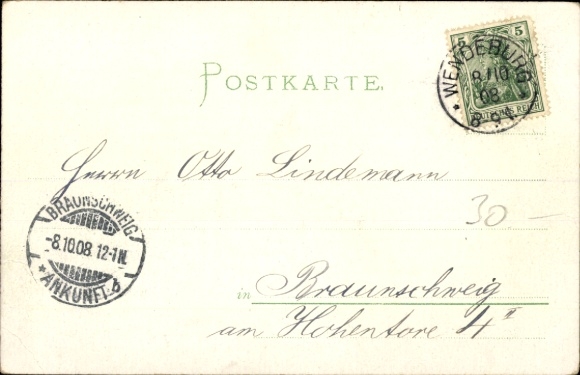 POSTKARTE.
5 5
DEUTSCHES REICH
* WENDEBURG *
8/10
08
8-9V.
Herrn Otto Lindemann
30 –
BRAUNSCHWEIG
-8.10.08. 12-1N.
* ANKUNFT. 6
in Braunschweig
am Hohentore 4 II